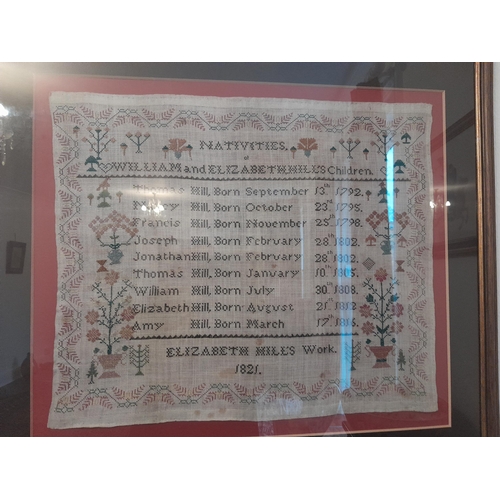 NATIVITIES,
of
WILLIAM and ELIZABETH HILL'S Children.
Hill, Born September 13th 1792.
Hill, Born October 23rd 1795.
Francis Hill, Born November 25th 1798.
Joseph Hill, Born February 28th 1802.
Jonathan Hill, Born February 28th 1802.
Thomas Hill, Born January 10th 1805.
William Hill, Born July 30th 1808.
Elizabeth Hill, Born August 21st
Amy Hill, Born March 17th
ELIZABETH HILL'S Work.
1821.